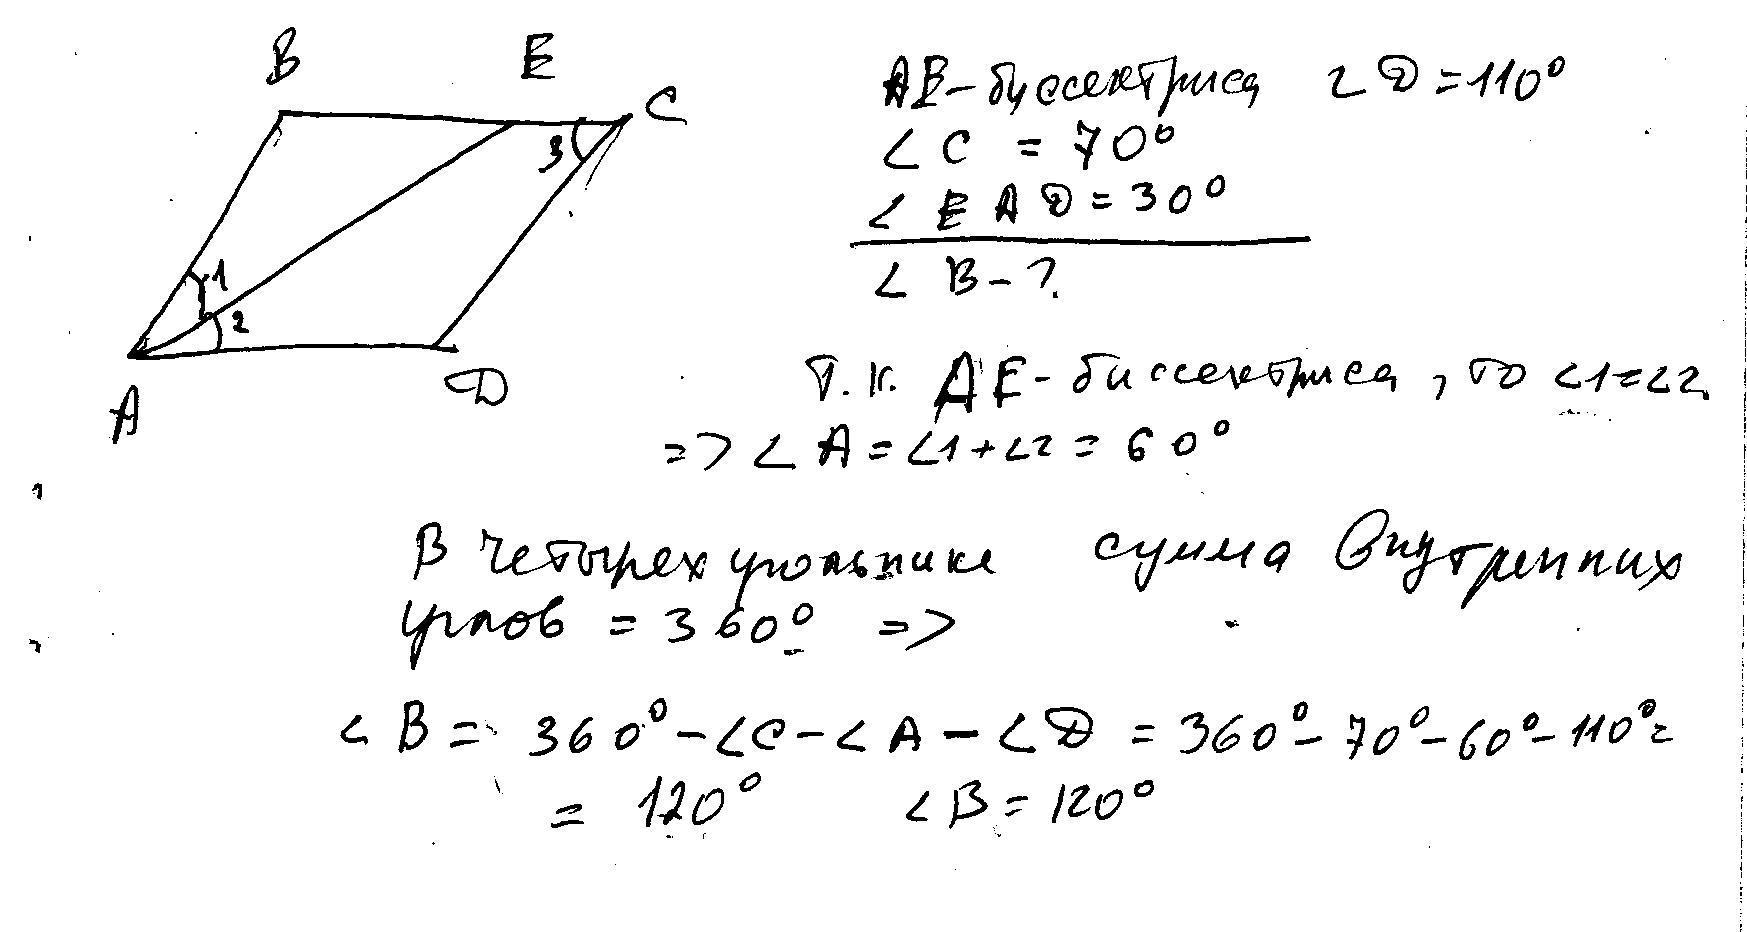 B E C
AE-биссектриса ∠D=110°
∠C = 70°
3
∠EAD=30°
∠B-?
1
2
A D
Т.к. AE-биссектриса, то ∠1=∠2
=> ∠A=∠1+∠2=60°
В четырехугольнике сумма внутренних
углов = 360° =>
∠B = 360°-∠C-∠A-∠D = 360°-70°-60°-110°=
= 120° ∠B=120°